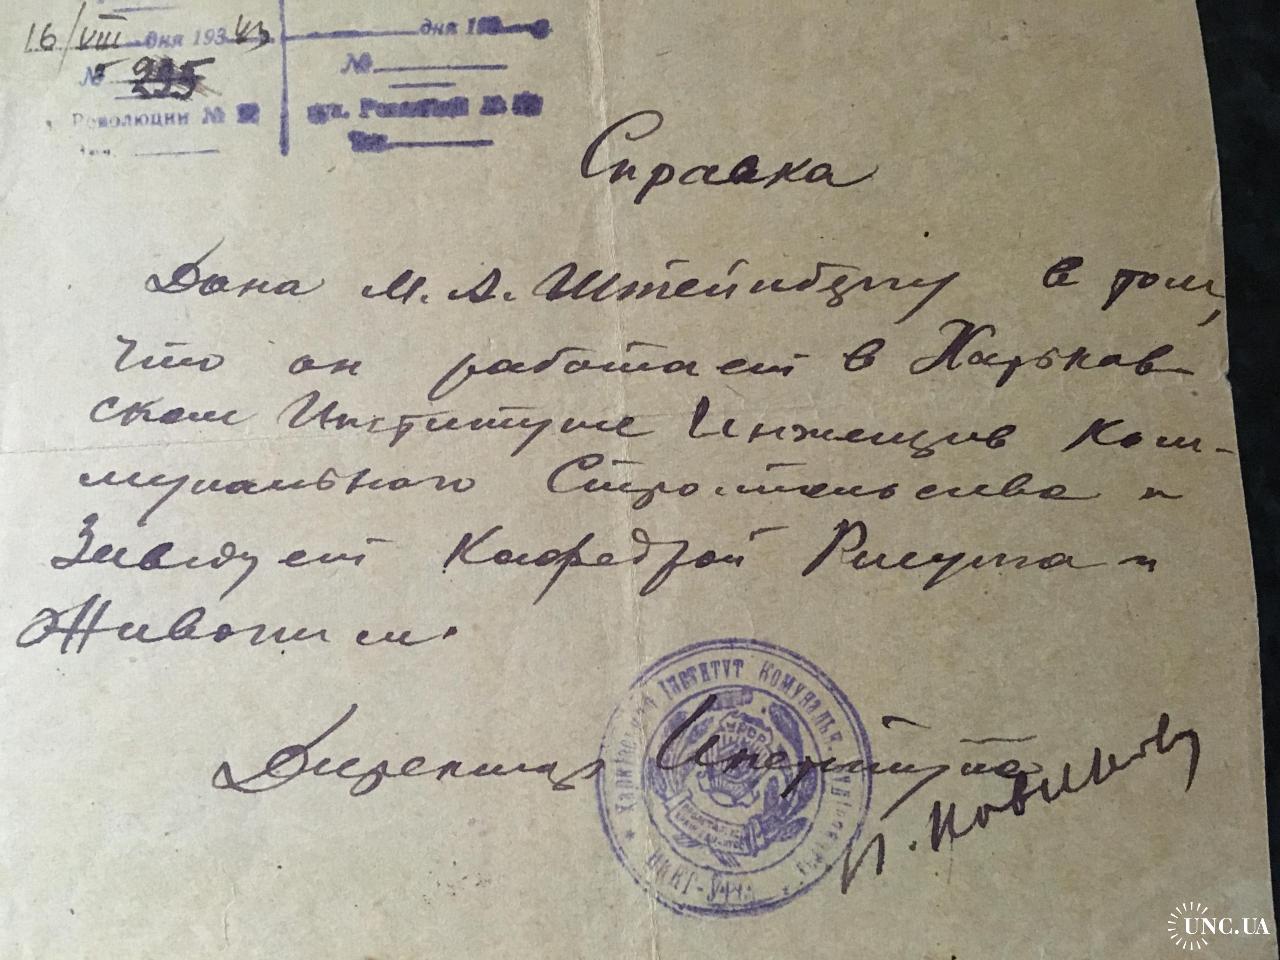 16/VIII дня 193 43
дня 193
№ 295
№
Революции №
ул. №
Справка
Дана М. А. Штейнбергу в том,
что он работает в Харьков-
ском Институте Инженеров Ком-
мунального Строительства и
Заведует Кафедрой Рисунка и
Живописи.
Директор Института
П. Новиков
Харківський Інститут Комунальн. Будівництва
УРСР
UNC.UA